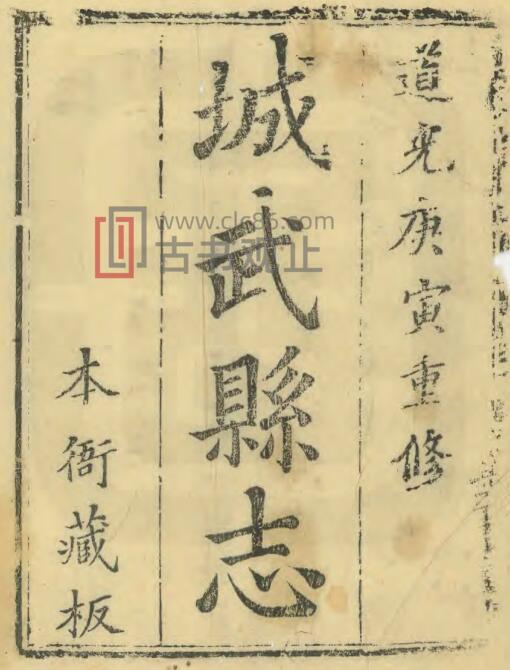 道光庚寅重修
城武縣志
本衙藏板
www.clc86.com
古书观止